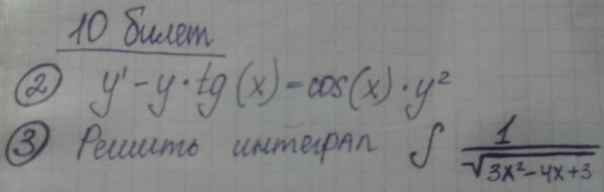 10 билет
② y' - y · tg(x) = cos(x) · y²
③ Решить интеграл ∫ 1/√(3x²-4x+3)